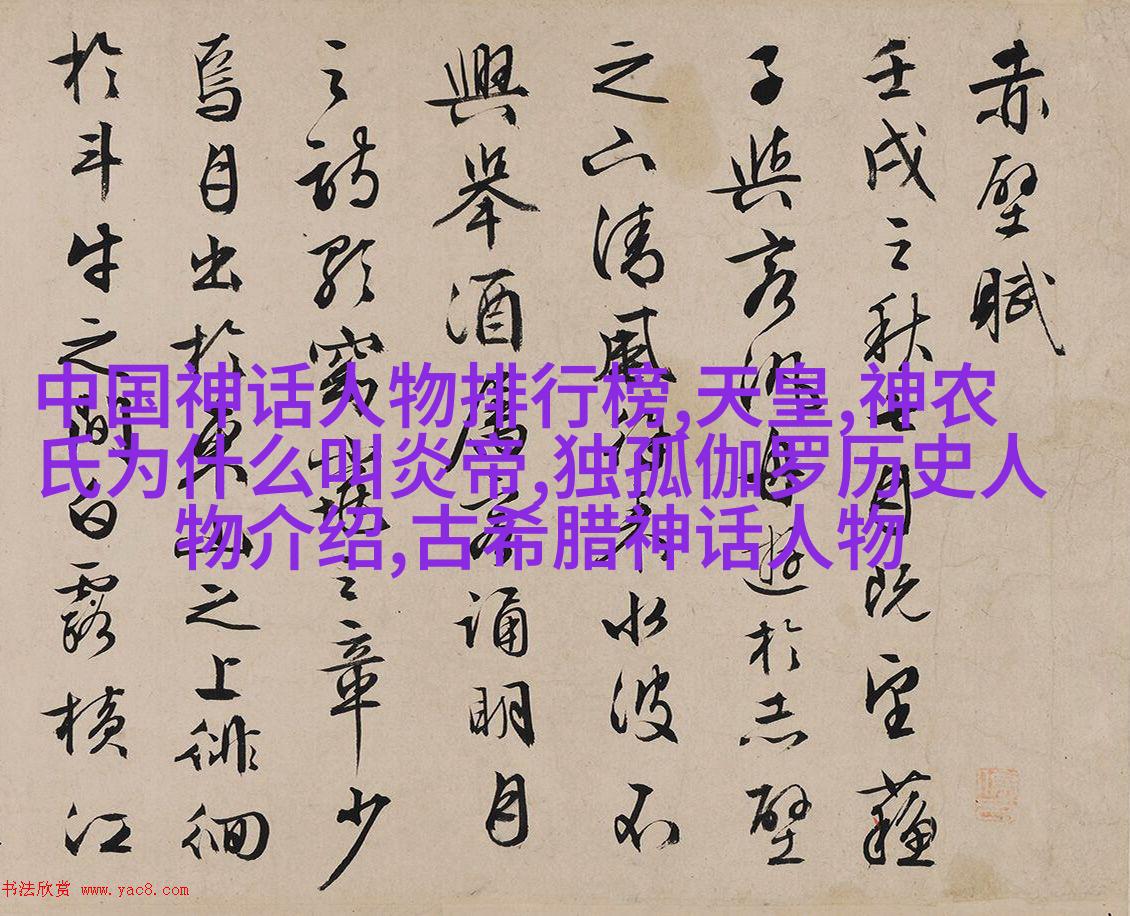 赤壁賦
壬戌之秋七月既望蘇
子與客泛舟遊於赤壁
之下清風徐來水波不
興舉酒屬客誦明月
之詩歌窈窕之章少
焉月出於東山之上徘徊
於斗牛之間白露橫江
中国神话人物排行榜,天皇,神农
氏为什么叫炎帝,独孤伽罗历史人
物介绍,古希腊神话人物
书法欣赏 www.yac8.com